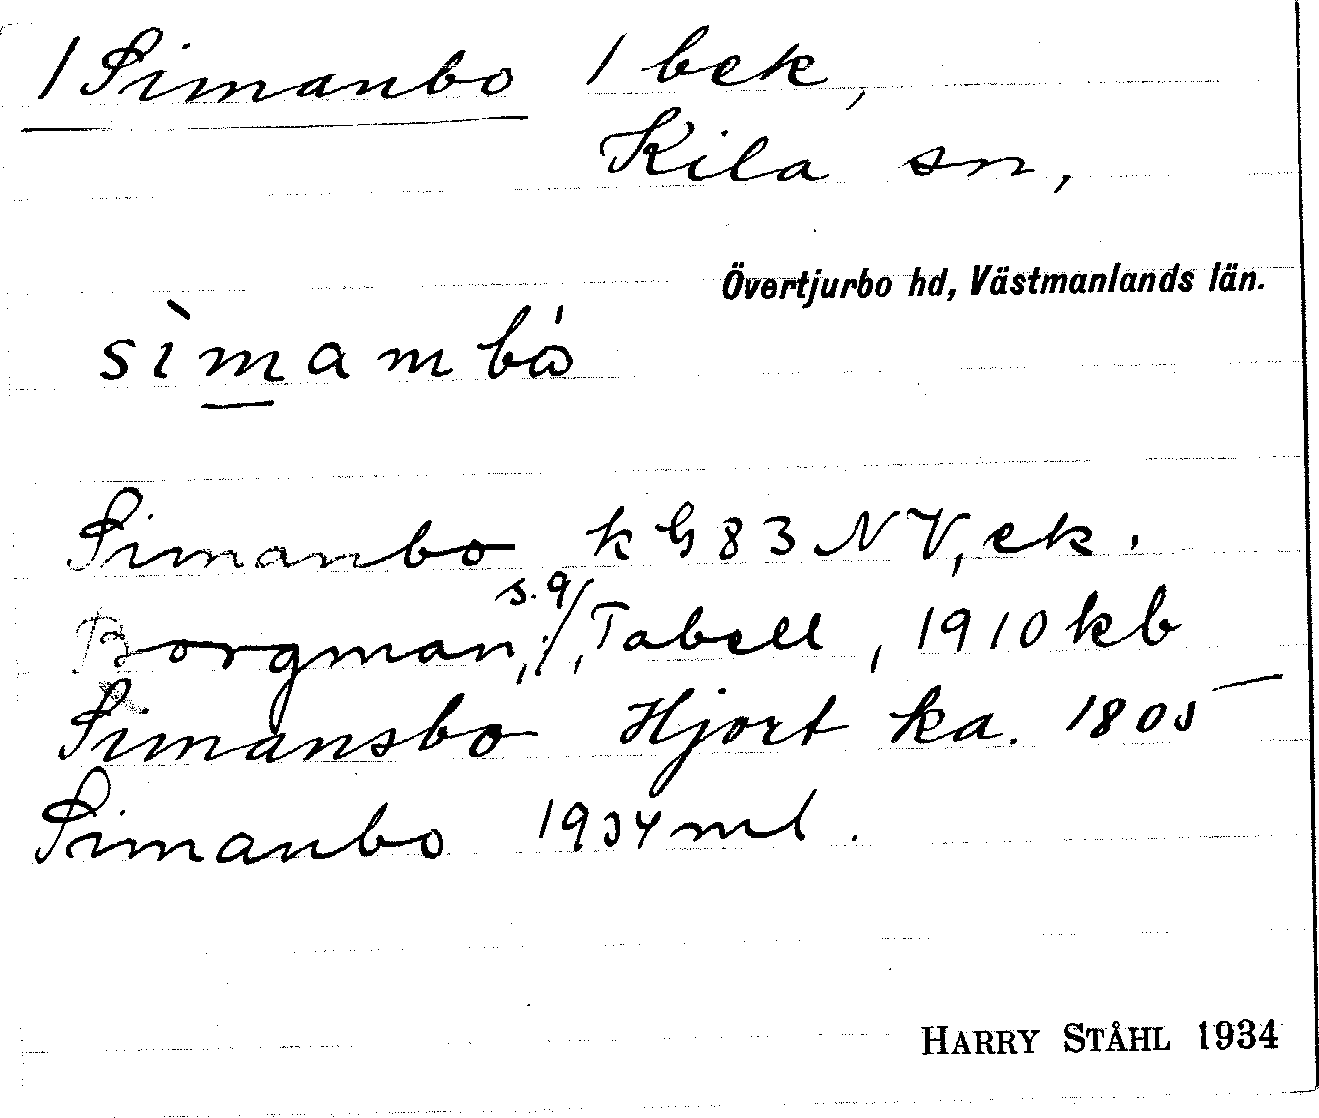 / Simanbo / bek,
Kila sn,
Övertjurbo hd, Västmanlands län.
sìmambó
Simanbo k G 83 NV, ek.
Borgman, s. 9/, Tabell, 1910 kb
Simansbo Hjort ka. 1805
Simanbo 1934 ml.
HARRY STÅHL 1934